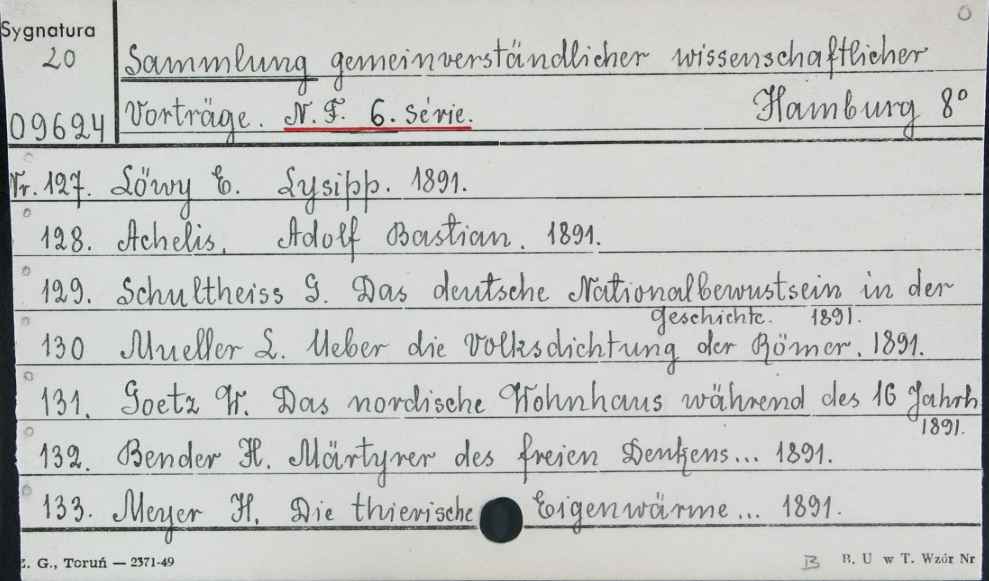 Sygnatura
20
09624
Sammlung gemeinverständlicher wissenschaftlicher
Vorträge. N. F. 6. Série. Hamburg 8°
Nr. 127. Löwy E. Lysipp. 1891.
128. Achelis. Adolf Bastian. 1891.
129. Schultheiss G. Das deutsche Nationalbewustsein in der
Geschichte. 1891.
130 Mueller L. Ueber die Volksdichtung der Römer. 1891.
131. Goetz W. Das nordische Wohnhaus während des 16 Jahrh
1891.
132. Bender H. Märtyrer des freien Denkens... 1891.
133. Meyer H. Die thierische Eigenwärme... 1891.
Z. G., Toruń — 2371-49
B B. U w T. Wzór Nr